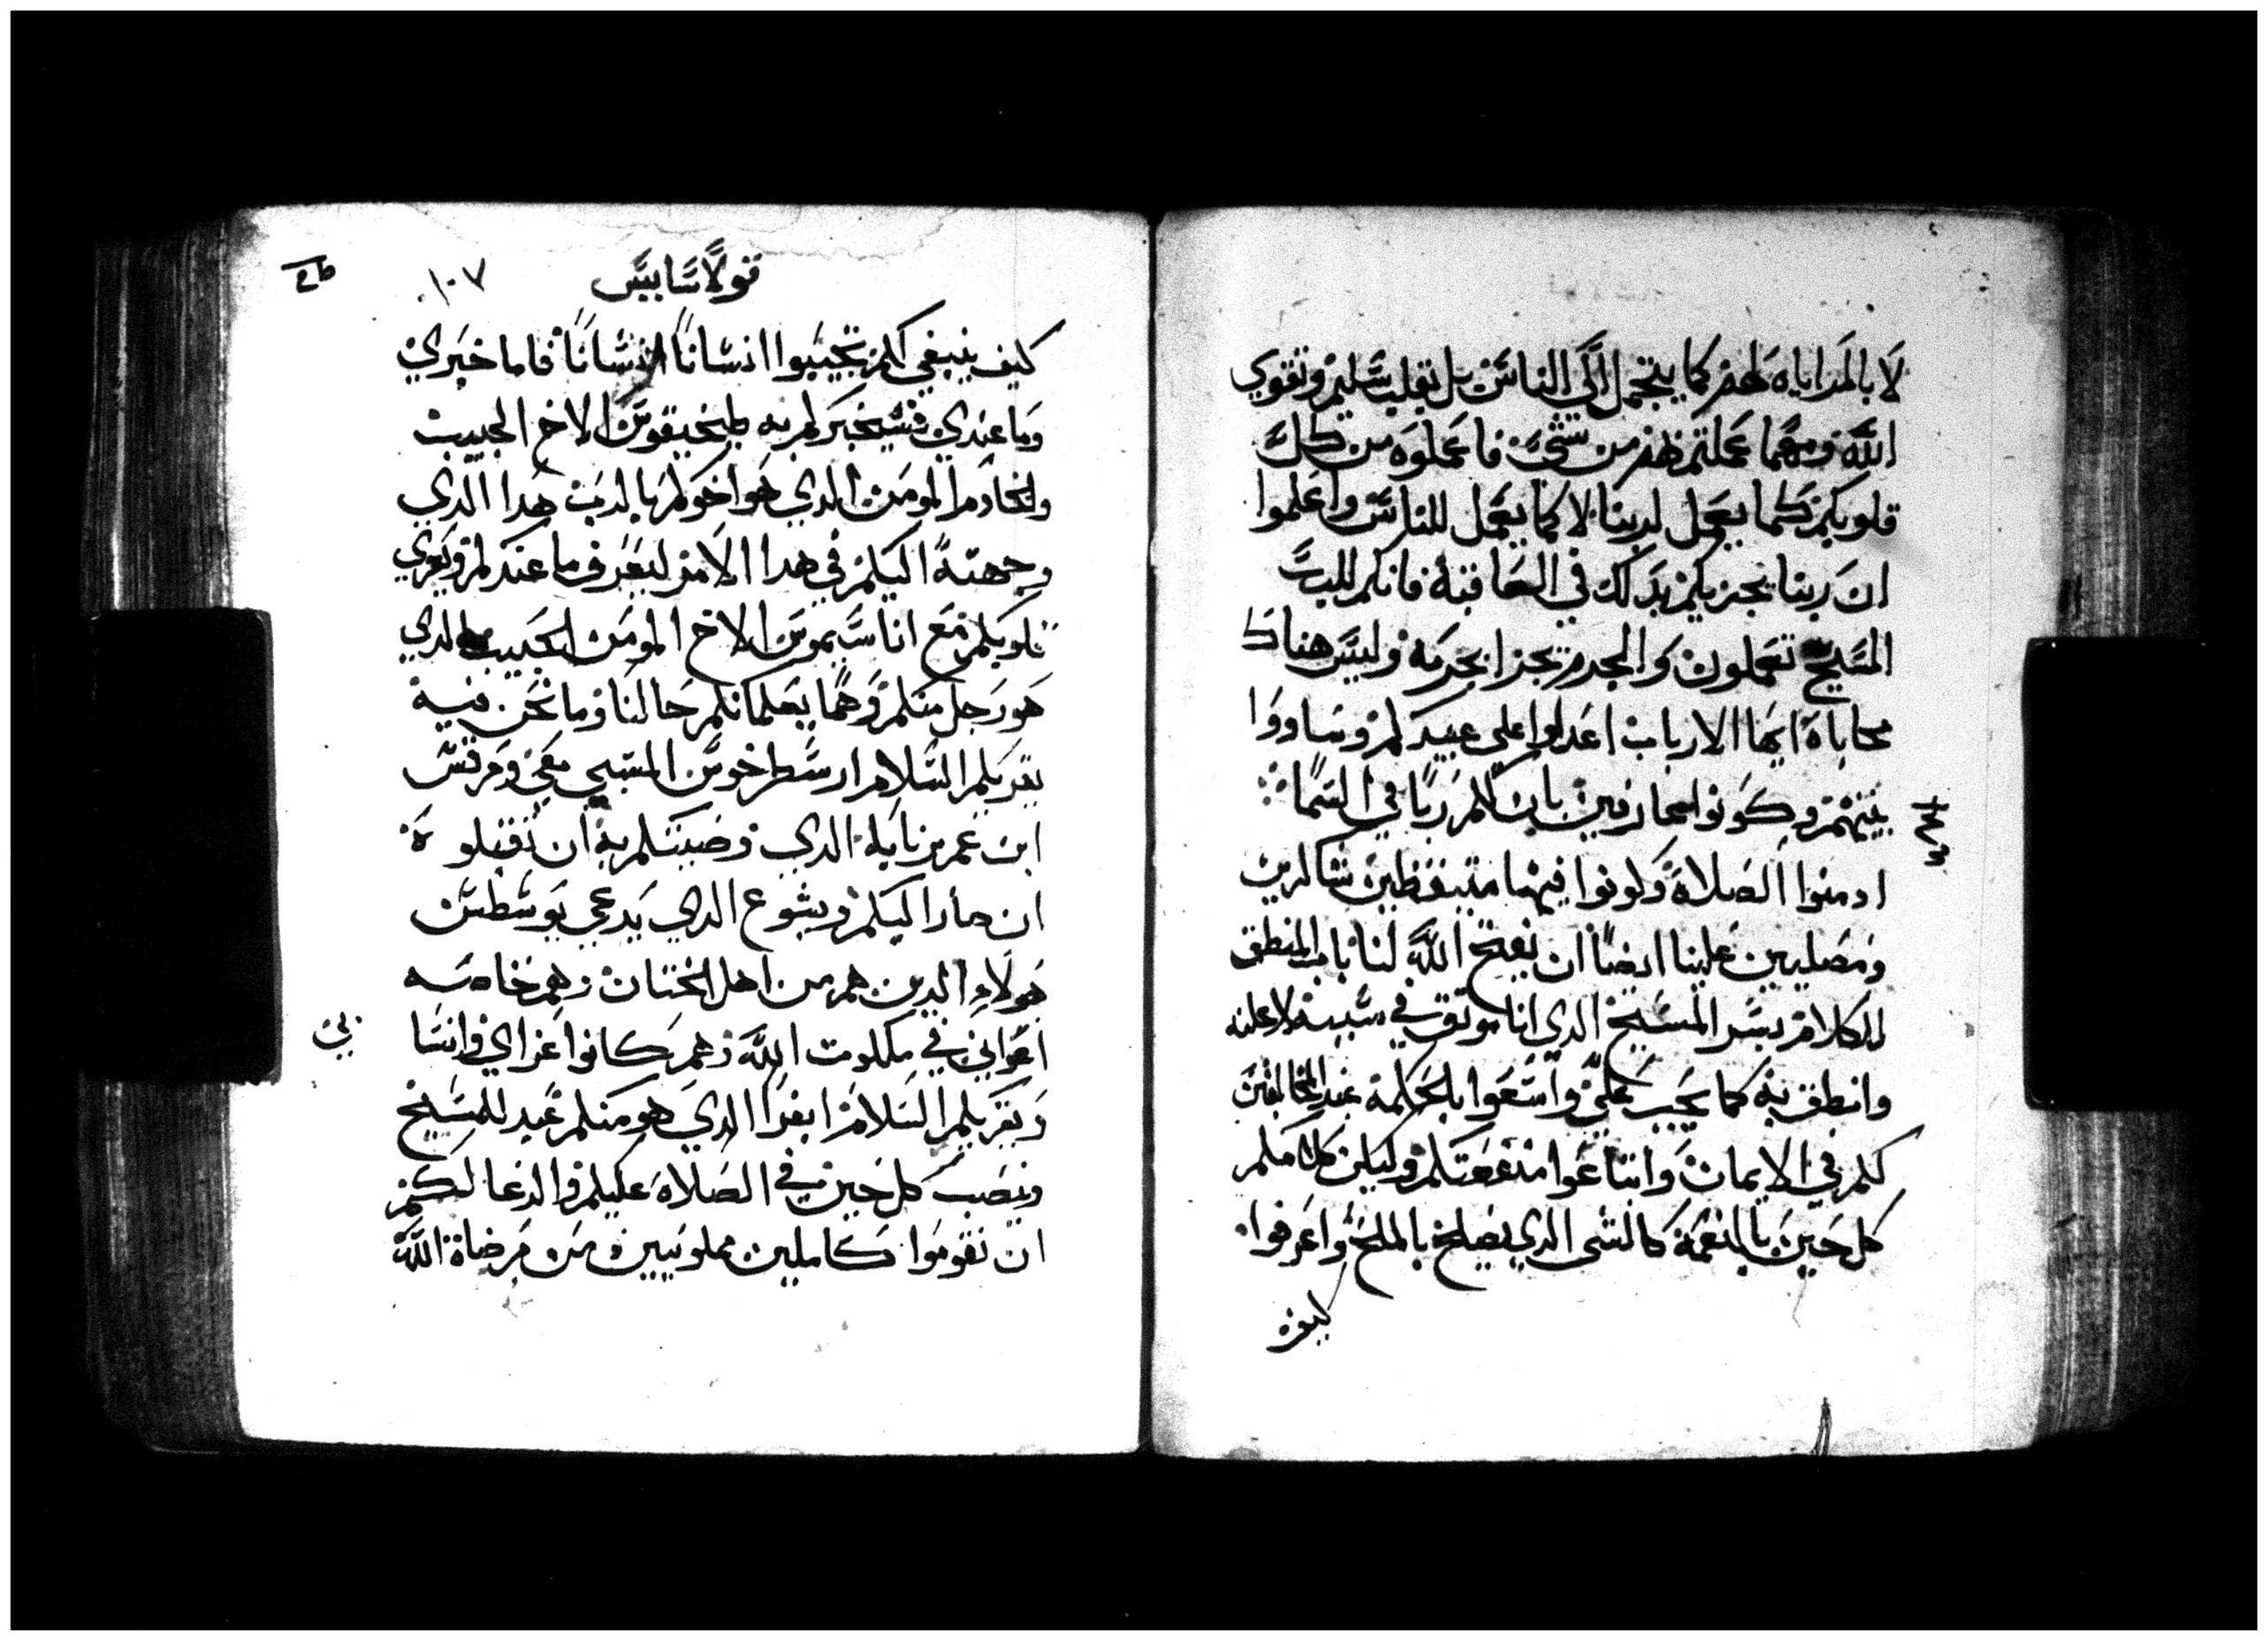 لا بالمراياه لهم كما يتجمل الي الناس بل بقلب سليم وتقوي
الله ومهما عملتم لهم من شيء فاعملوه من كل
قلوبكم كما يعمل لربنا لا كما يعمل للناس واعلموا
ان ربنا يجزيكم بدلك في العاقبة فانكم للرب
المسيح تعملون والمجرم يجزا بجرمه وليس هناك
محاباة ايها الارباب اعدلوا علي عبيدكم وساووا
بينهم وكونوا عارفين بان لكم ربا في السما
ادمنوا الصلاة وكونوا فيها متيقظين شاكرين
ومصليين علينا ايضا ان يفتح الله لنا باب المنطق
للكلام بسر المسيح الدي انا موثق في سببه لاعلنه
وانطق به كما يجب علي واسعوا بالحكمة عند المخالفين
لكم في الايمان وابتاعوا منفعتكم وليكن كلامكم
كل حين بالنعمة كالشي الدي يصلح بالملح واعرفوا
كيف
قولاسايس
١٠٧
كيف ينبغي لكم تجيبوا انسانا انسانا فاما خبري
وما عندي فسيخبركم به طيخيقوس الاخ الحبيب
والخادم المومن الدي هو اخوكم بالرب هدا الدي
وجهته اليكم في هدا الامر ليعرف ما عندكم ويعزي
قلوبكم مع اناسيموس الاخ المومن الحبيب الدي
هو رجل منكم وهما يعلمانكم حالنا وما نحن فيه
يقريكم السلام ارسطرخوس المسبي معي ومرقس
ابن عم برنابا الدي وصيتكم به ان تقبلوه
ان صار اليكم ويشوع الدي يدعي يوسطس
هولاء الدين هم من اهل الختان وهم خاصه
اعواني في ملكوت الله وهم كانوا عزاي وانسا
ويقريكم السلام ابفرا الدي هو منكم عبد للمسيح
وينصب كل حين في الصلاة عليكم والدعا لكم
ان تقوموا كاملين مملويين من مرضاة الله